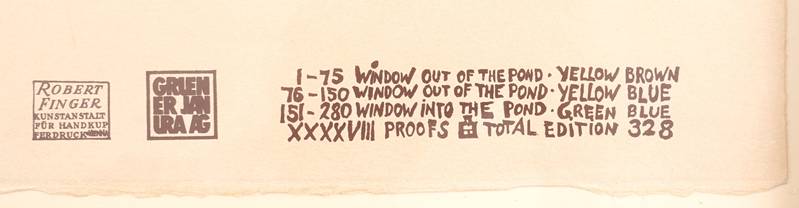 ROBERT
FINGER
KUNSTANSTALT
FÜR HANDKUP
FERDRUCK VIENNA
GRUEN
ER JAN
URA AG
1-75 WINDOW OUT OF THE POND · YELLOW BROWN
76-150 WINDOW OUT OF THE POND · YELLOW BLUE
151-280 WINDOW INTO THE POND · GREEN BLUE
XXXXVIII PROOFS TOTAL EDITION 328